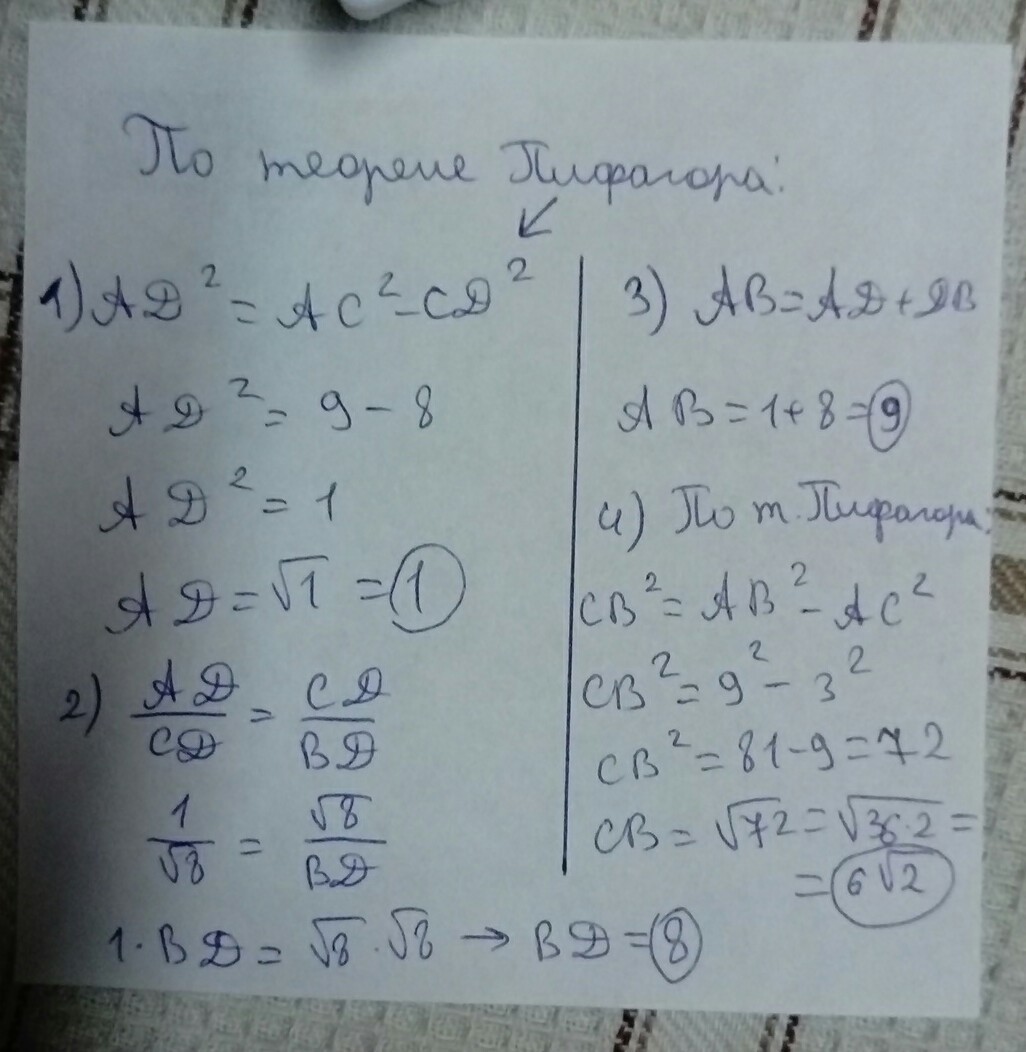 По теореме Пифагора:
↙
1) AD² = AC² - CD²
AD² = 9 - 8
AD² = 1
AD = √1 = 1
2) AD/CD = CD/BD
1/√8 = √8/BD
1·BD = √8·√8 → BD = 8
3) AB = AD + DB
AB = 1 + 8 = 9
4) По т. Пифагора:
CB² = AB² - AC²
CB² = 9² - 3²
CB² = 81 - 9 = 72
CB = √72 = √36·2 =
= 6√2